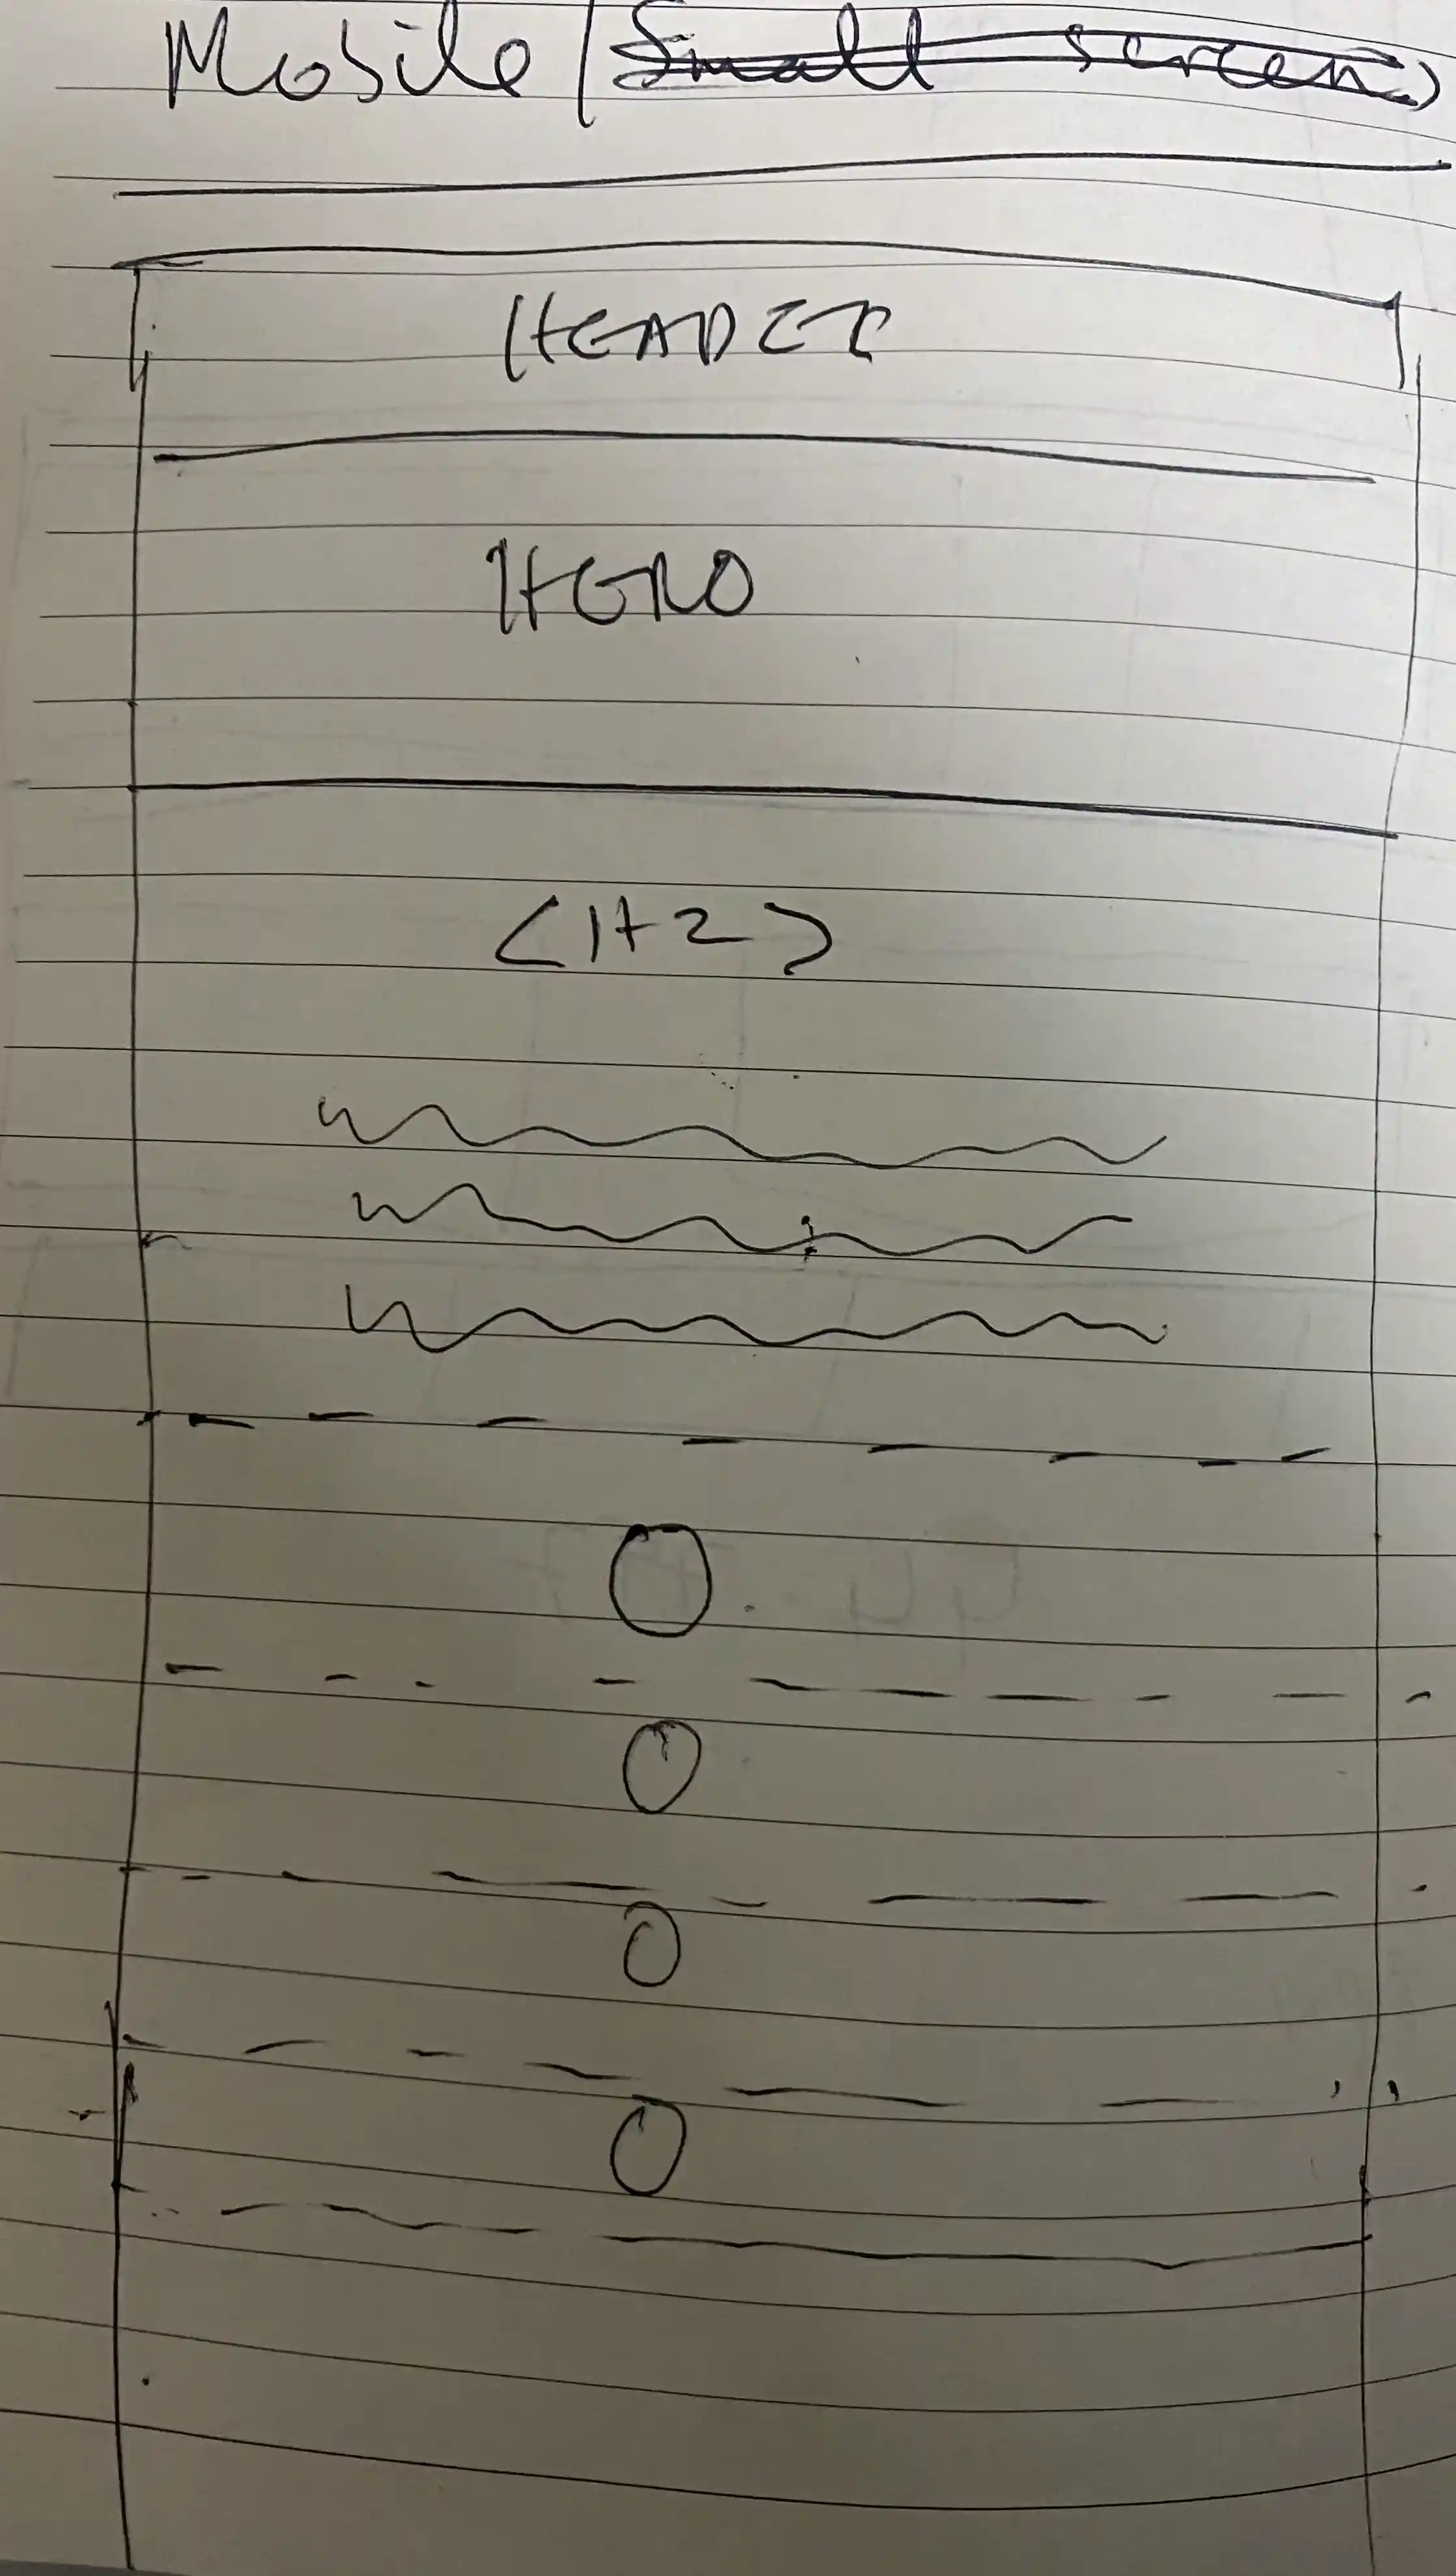 Mobile (Small screen)
HEADER
HERO
<H2>